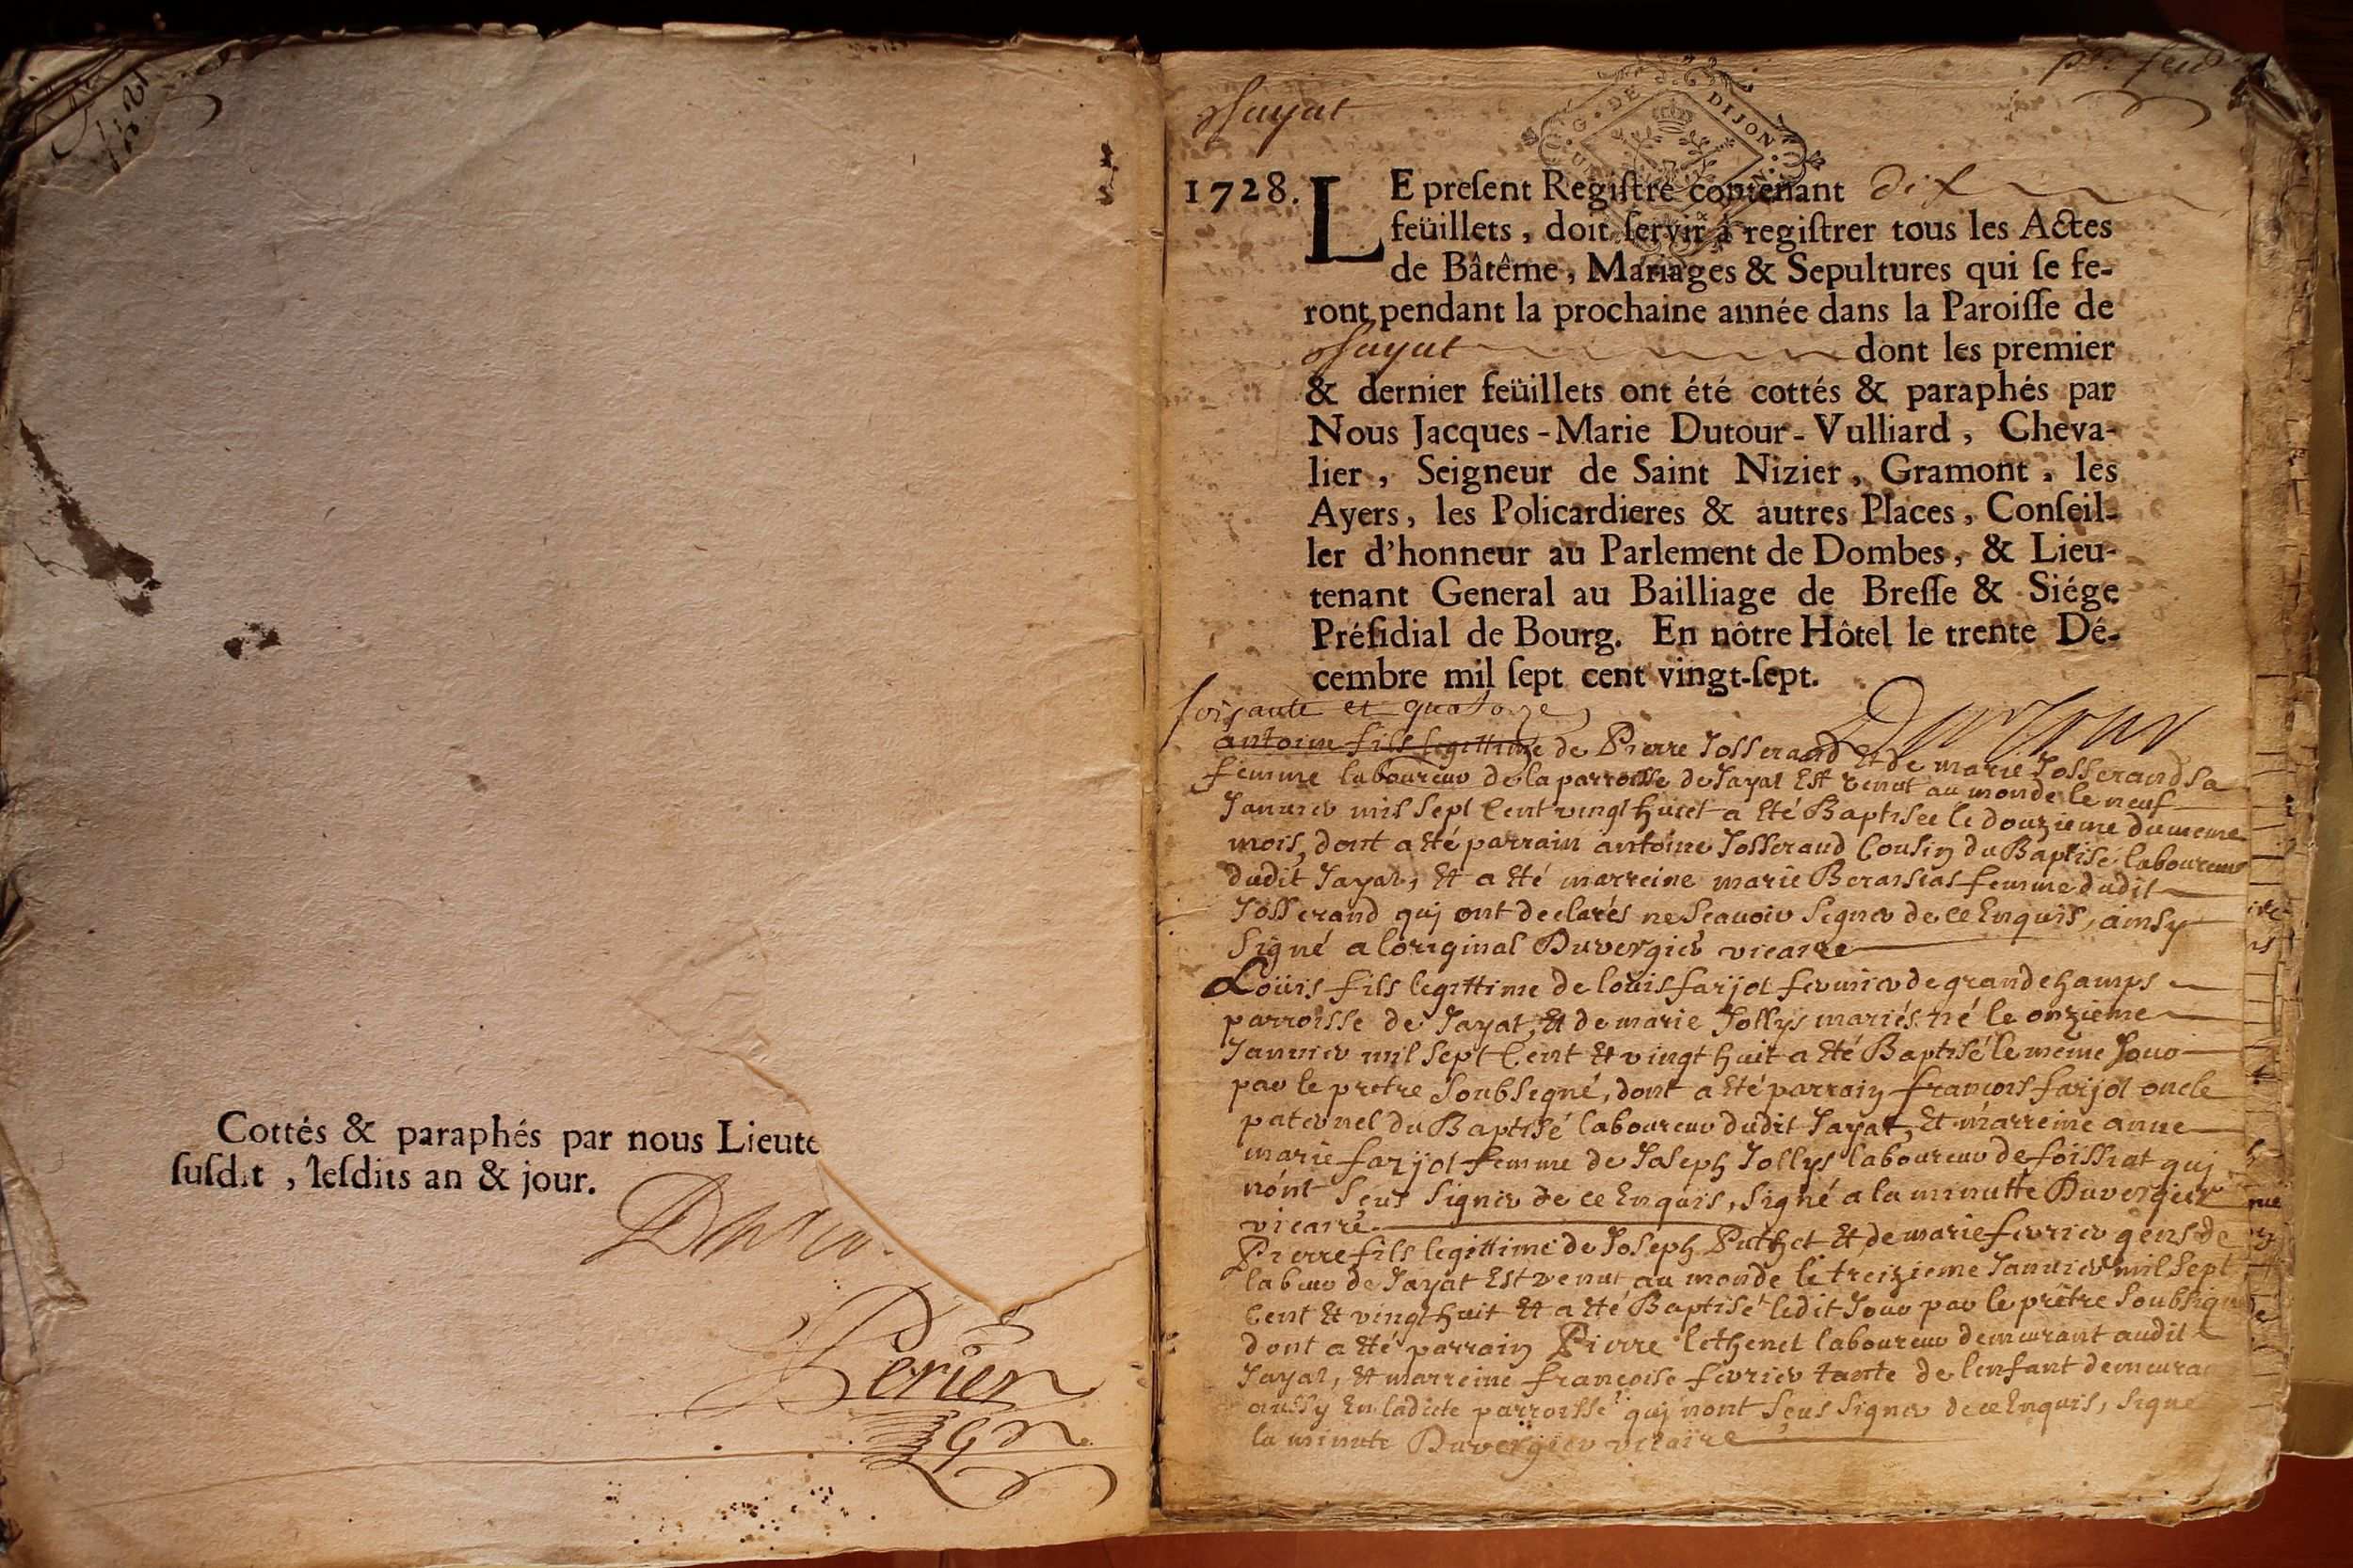 Cottés & paraphés par nous Lieute
ſuſdit, leſdits an & jour.
Perier
Jayat
G. DE DIJON
1728. LE preſent Regiſtre contenant dix
feüillets, doit ſervir à regiſtrer tous les Actes
de Bâtême, Mariages & Sepultures qui ſe fe-
ront pendant la prochaine année dans la Paroiſſe de
Jayat dont les premier
& dernier feüillets ont été cottés & paraphés par
Nous Jacques-Marie Dutour-Vulliard, Cheva-
lier, Seigneur de Saint Nizier, Gramont, les
Ayers, les Policardieres & autres Places, Conſeil-
ler d'honneur au Parlement de Dombes, & Lieu-
tenant General au Bailliage de Breſſe & Siége
Préſidial de Bourg. En nôtre Hôtel le trente Dé-
cembre mil ſept cent vingt-ſept.
soisante et quatorze
Dutour
antoine fils legittime de Pierre Josserand Et de marie Josserand sa
femme laboureur de la parroisse de Jayat Est venut au monde le neuf
Janvier mil sept Cent vingt huict a Eté Baptisee le douzieme du meme
mois, dont a été parrain antoine Josserand Cousin du Baptisé laboureur
dudit Jayat, Et a Eté marreine marie femme dudit
Josserand qui ont declarés ne scavoir signer de ce Enquis, ainsy
signé a loriginal Duvergier vicaire
Loüis fils legittime de loüis farjot fermier de grandchamps
parroisse de Jayat, Et de marie Jollys mariés né le onzieme
Janvier mil sept Cent Et vingt huit a Eté Baptisé le meme Jour
par le pretre soubsigné, dont a Eté parrain francois farjot oncle
paternel du Baptisé laboureur dudit Jayat, Et marreine anne
marie farjot femme de Joseph Jollys laboureur de foissiat qui
nont sçus signer de ce Enquis, signé a la minutte Duvergier
vicaire
Pierre fils legittime de Joseph Puthet Et de marie fevrier gens de
labeur de Jayat Est venut au monde le treizieme Janvier mil sept
Cent Et vingt huit Et a Eté Baptisé ledit Jour par le prêtre soubsigné
dont a Eté parrain Pierre lethenet laboureur demeurant audit
Jayat, Et marreine francoise fevrier tante de lenfant demeurant
aussy En ladicte parroisse qui nont sçus signer de ce Enquis, signé
la minute Duvergier vicaire